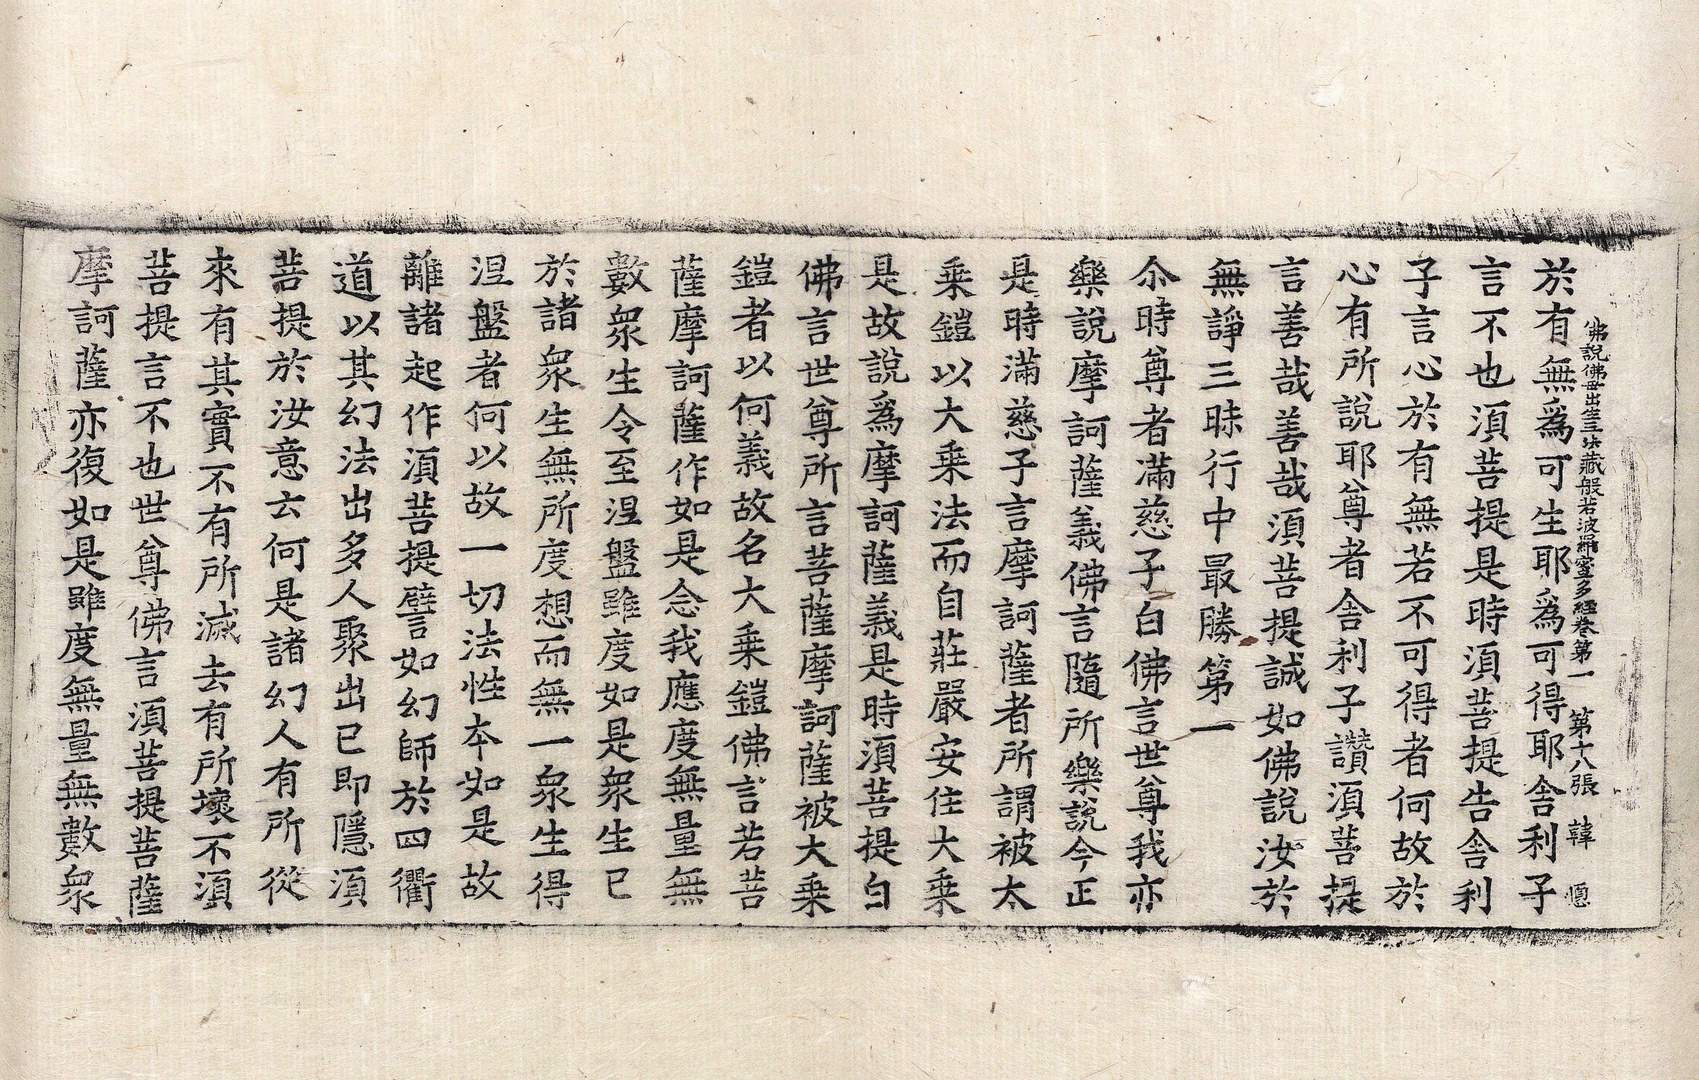 佛說佛母出生三法藏般若波羅蜜多經卷第一　第十八張　韓
於有無爲可生耶爲可得耶舍利子
言不也須菩提是時須菩提告舍利
子言心於有無若不可得者何故於
心有所說耶尊者舍利子讚須菩提
言善哉善哉須菩提誠如佛說汝於
無諍三昧行中最勝第一
尒時尊者滿慈子白佛言世尊我亦
樂說摩訶薩義佛言隨所樂說今正
是時滿慈子言摩訶薩者所謂被大
乘鎧以大乘法而自莊嚴安住大乘
是故說爲摩訶薩義是時須菩提白
佛言世尊所言菩薩摩訶薩被大乘
鎧者以何義故名大乘鎧佛言若菩
薩摩訶薩作如是念我應度無量無
數衆生令至涅盤雖度如是衆生已
於諸衆生無所度想而無一衆生得
涅盤者何以故一切法性本如是故
離諸起作須菩提譬如幻師於四衢
道以其幻法出多人聚出已即隱須
菩提於汝意云何是諸幻人有所從
來有其實不有所滅去有所壞不須
菩提言不也世尊佛言須菩提菩薩
摩訶薩亦復如是雖度無量無數衆